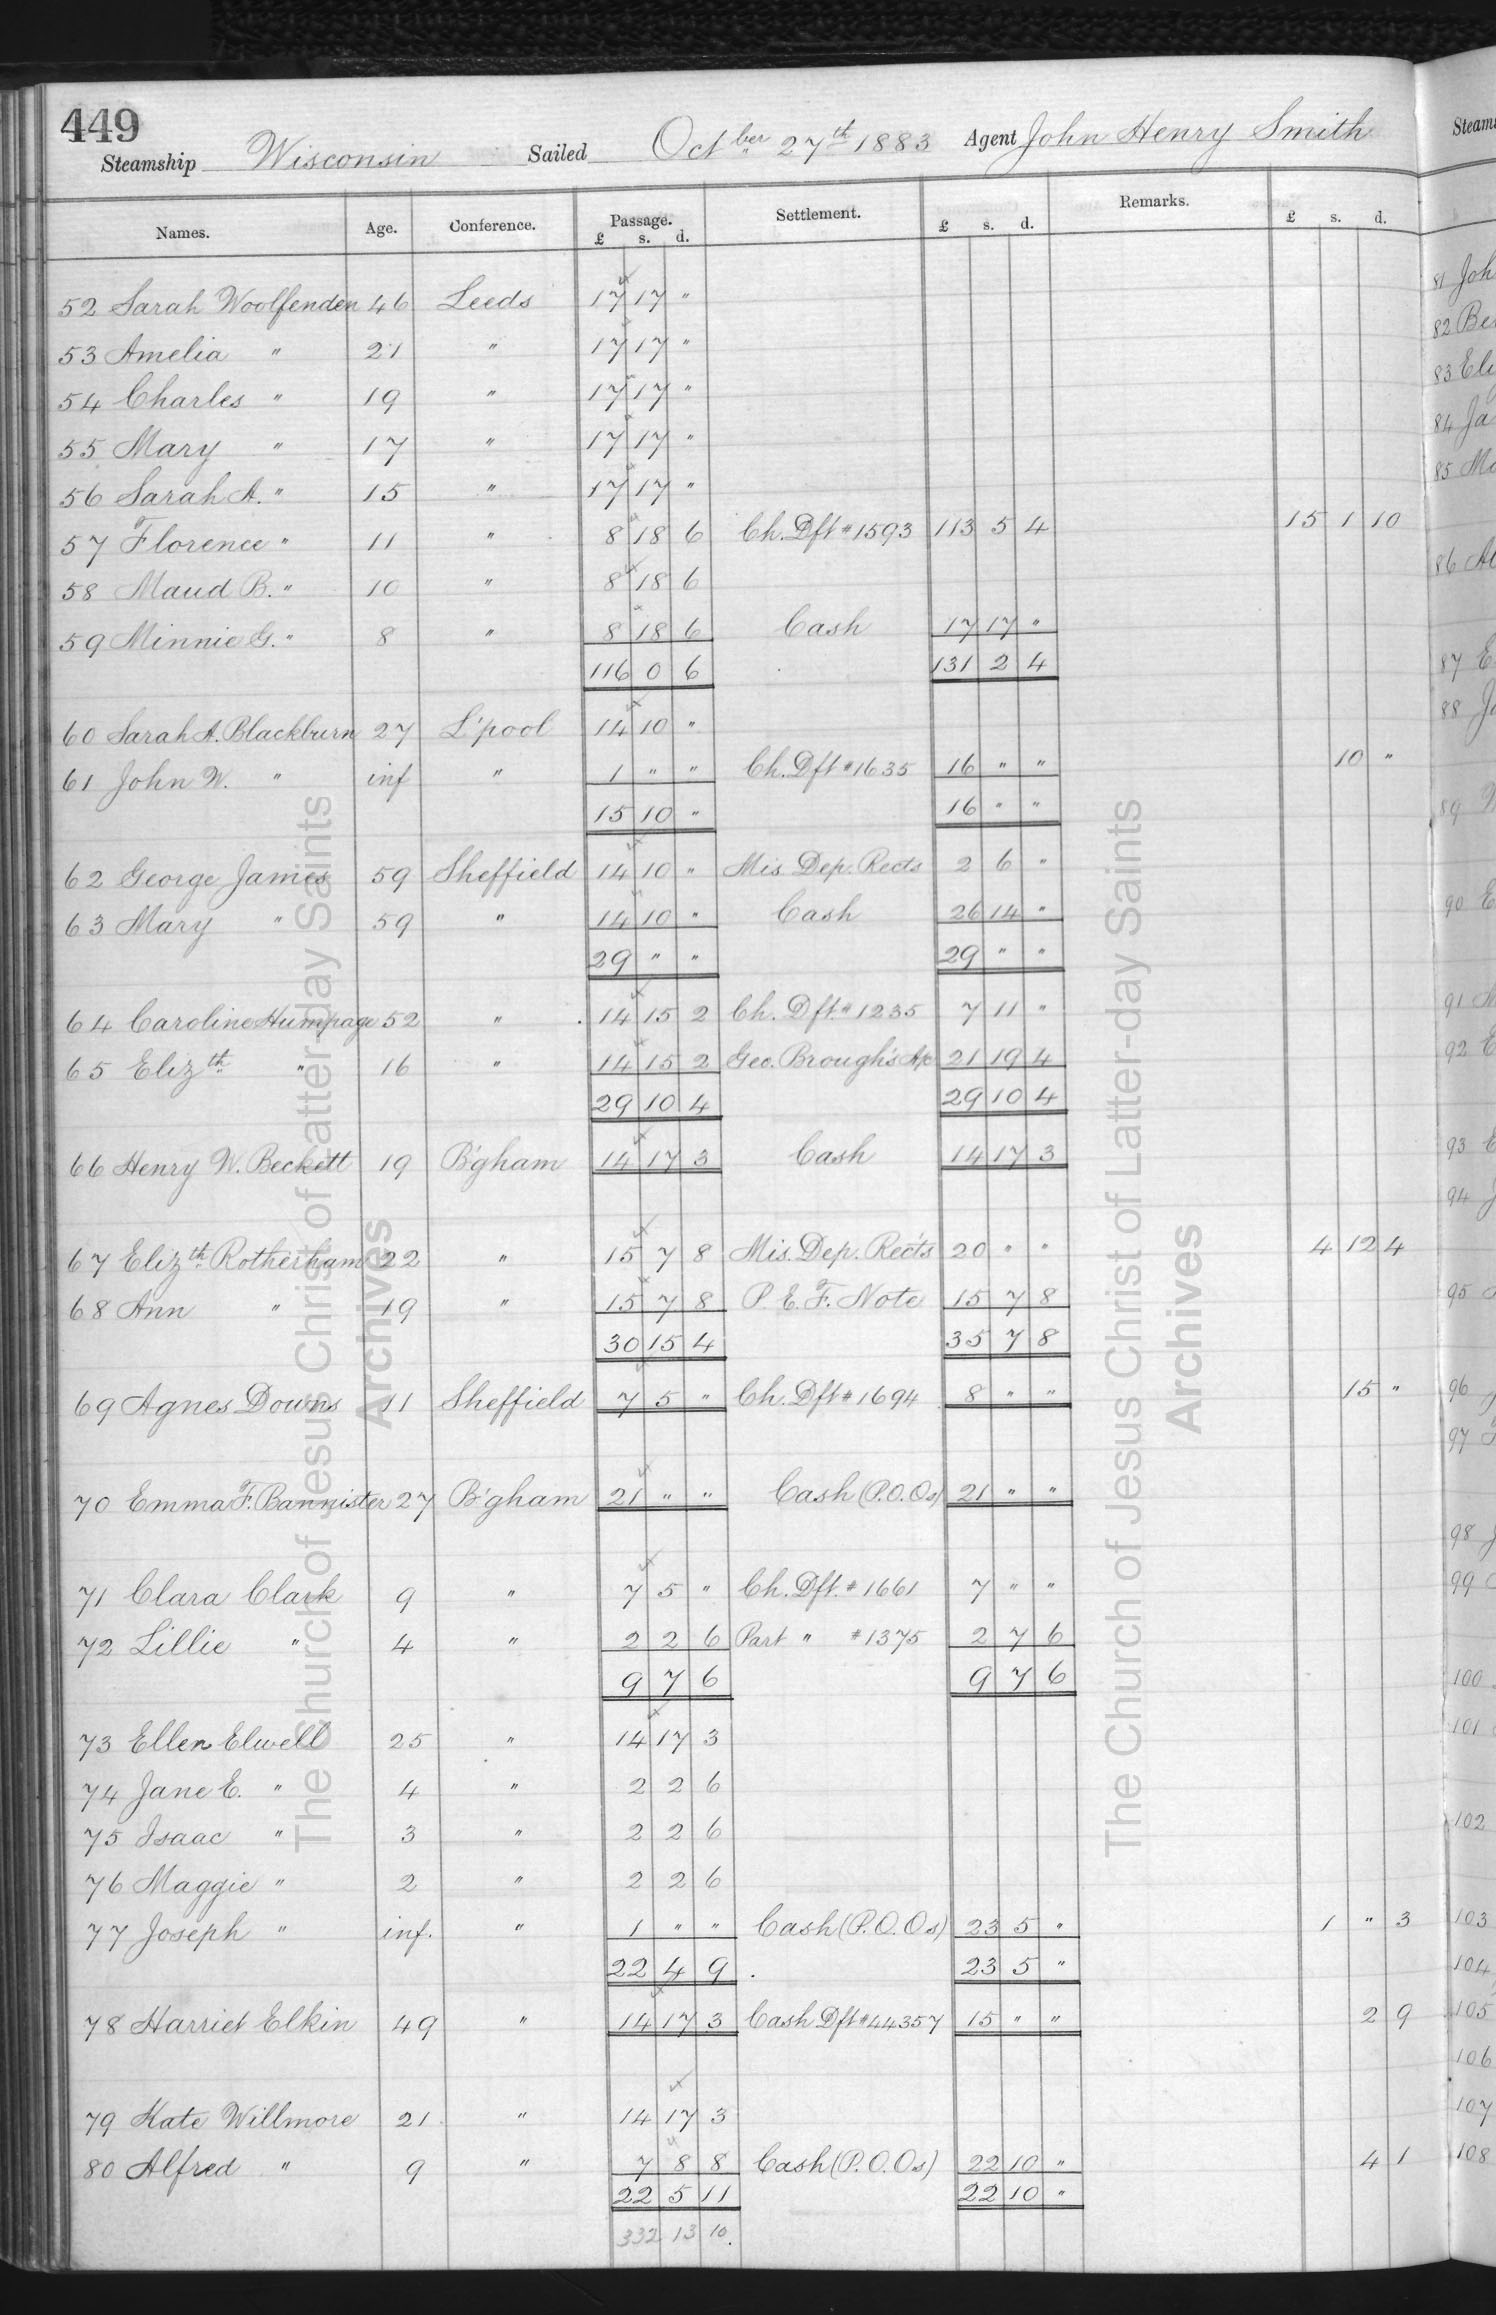 449
Steamship Wisconsin Sailed Octber 27th 1883 Agent John Henry Smith
Names. Age. Conference. Passage. £ s. d. Settlement. £ s. d. Remarks. £ s. d.
52 Sarah Woolfenden 46 Leeds 17 17 "
53 Amelia " 21 " 17 17 "
54 Charles " 19 " 17 17 "
55 Mary " 17 " 17 17 "
56 Sarah A. " 15 " 17 17 "
57 Florence " 11 " 8 18 6 Ch. Dft # 1593 113 5 4 15 1 10
58 Maud B. " 10 " 8 18 6
59 Minnie G. " 8 " 8 18 6 Cash 17 17 "
116 0 6 131 2 4
60 Sarah A. Blackburn 27 L'pool 14 10 "
61 John W. " inf " 1 " " Ch. Dft # 1635 16 " " 10 "
15 10 " 16 " "
62 George James 59 Sheffield 14 10 " Mis. Dep. Rects 2 6 "
63 Mary " 59 " 14 10 " Cash 26 14 "
29 " " 29 " "
64 Caroline Humpage 52 " 14 15 2 Ch. Dft. # 1235 7 11 "
65 Elizth " 16 " 14 15 2 Geo. Brough's A/c 21 19 4
29 10 4 29 10 4
66 Henry W. Beckett 19 B'gham 14 17 3 Cash 14 17 3
67 Elizth Rotherham 22 " 15 7 8 Mis. Dep. Rec'ts 20 " " 4 12 4
68 Ann " 19 " 15 7 8 P. E. F. Note 15 7 8
30 15 4 35 7 8
69 Agnes Downs 11 Sheffield 7 5 " Ch. Dft # 1694 8 " " 15 "
70 Emma F. Bannister 27 B'gham 21 " " Cash (P.O.Os) 21 " "
71 Clara Clark 9 " 7 5 " Ch. Dft. # 1661 7 " "
72 Lillie " 4 " 2 2 6 Part " # 1375 2 7 6
9 7 6 9 7 6
73 Ellen Elwell 25 " 14 17 3
74 Jane E. " 4 " 2 2 6
75 Isaac " 3 " 2 2 6
76 Maggie " 2 " 2 2 6
77 Joseph " inf. " 1 " " Cash (P.O.Os) 23 5 " 1 " 3
22 4 9 23 5 "
78 Harriet Elkin 49 " 14 17 3 Cash Dft # 44357 15 " " 2 9
79 Kate Willmore 21 " 14 17 3
80 Alfred " 9 " 7 8 8 Cash (P.O.Os) 22 10 " 4 1
22 5 11 22 10 "
332 13 10.
The Church of Jesus Christ of Latter-day Saints
Archives
The Church of Jesus Christ of Latter-day Saints
Archives
81 Joh
82 Be
83 Eli
84 Ja
85 Ma
86 Al
87 E
88 Jo
89
90 E
91
92 E
93 E
94 J
95
96
97
98
99
100
101
102
103
104
105
106
107
108